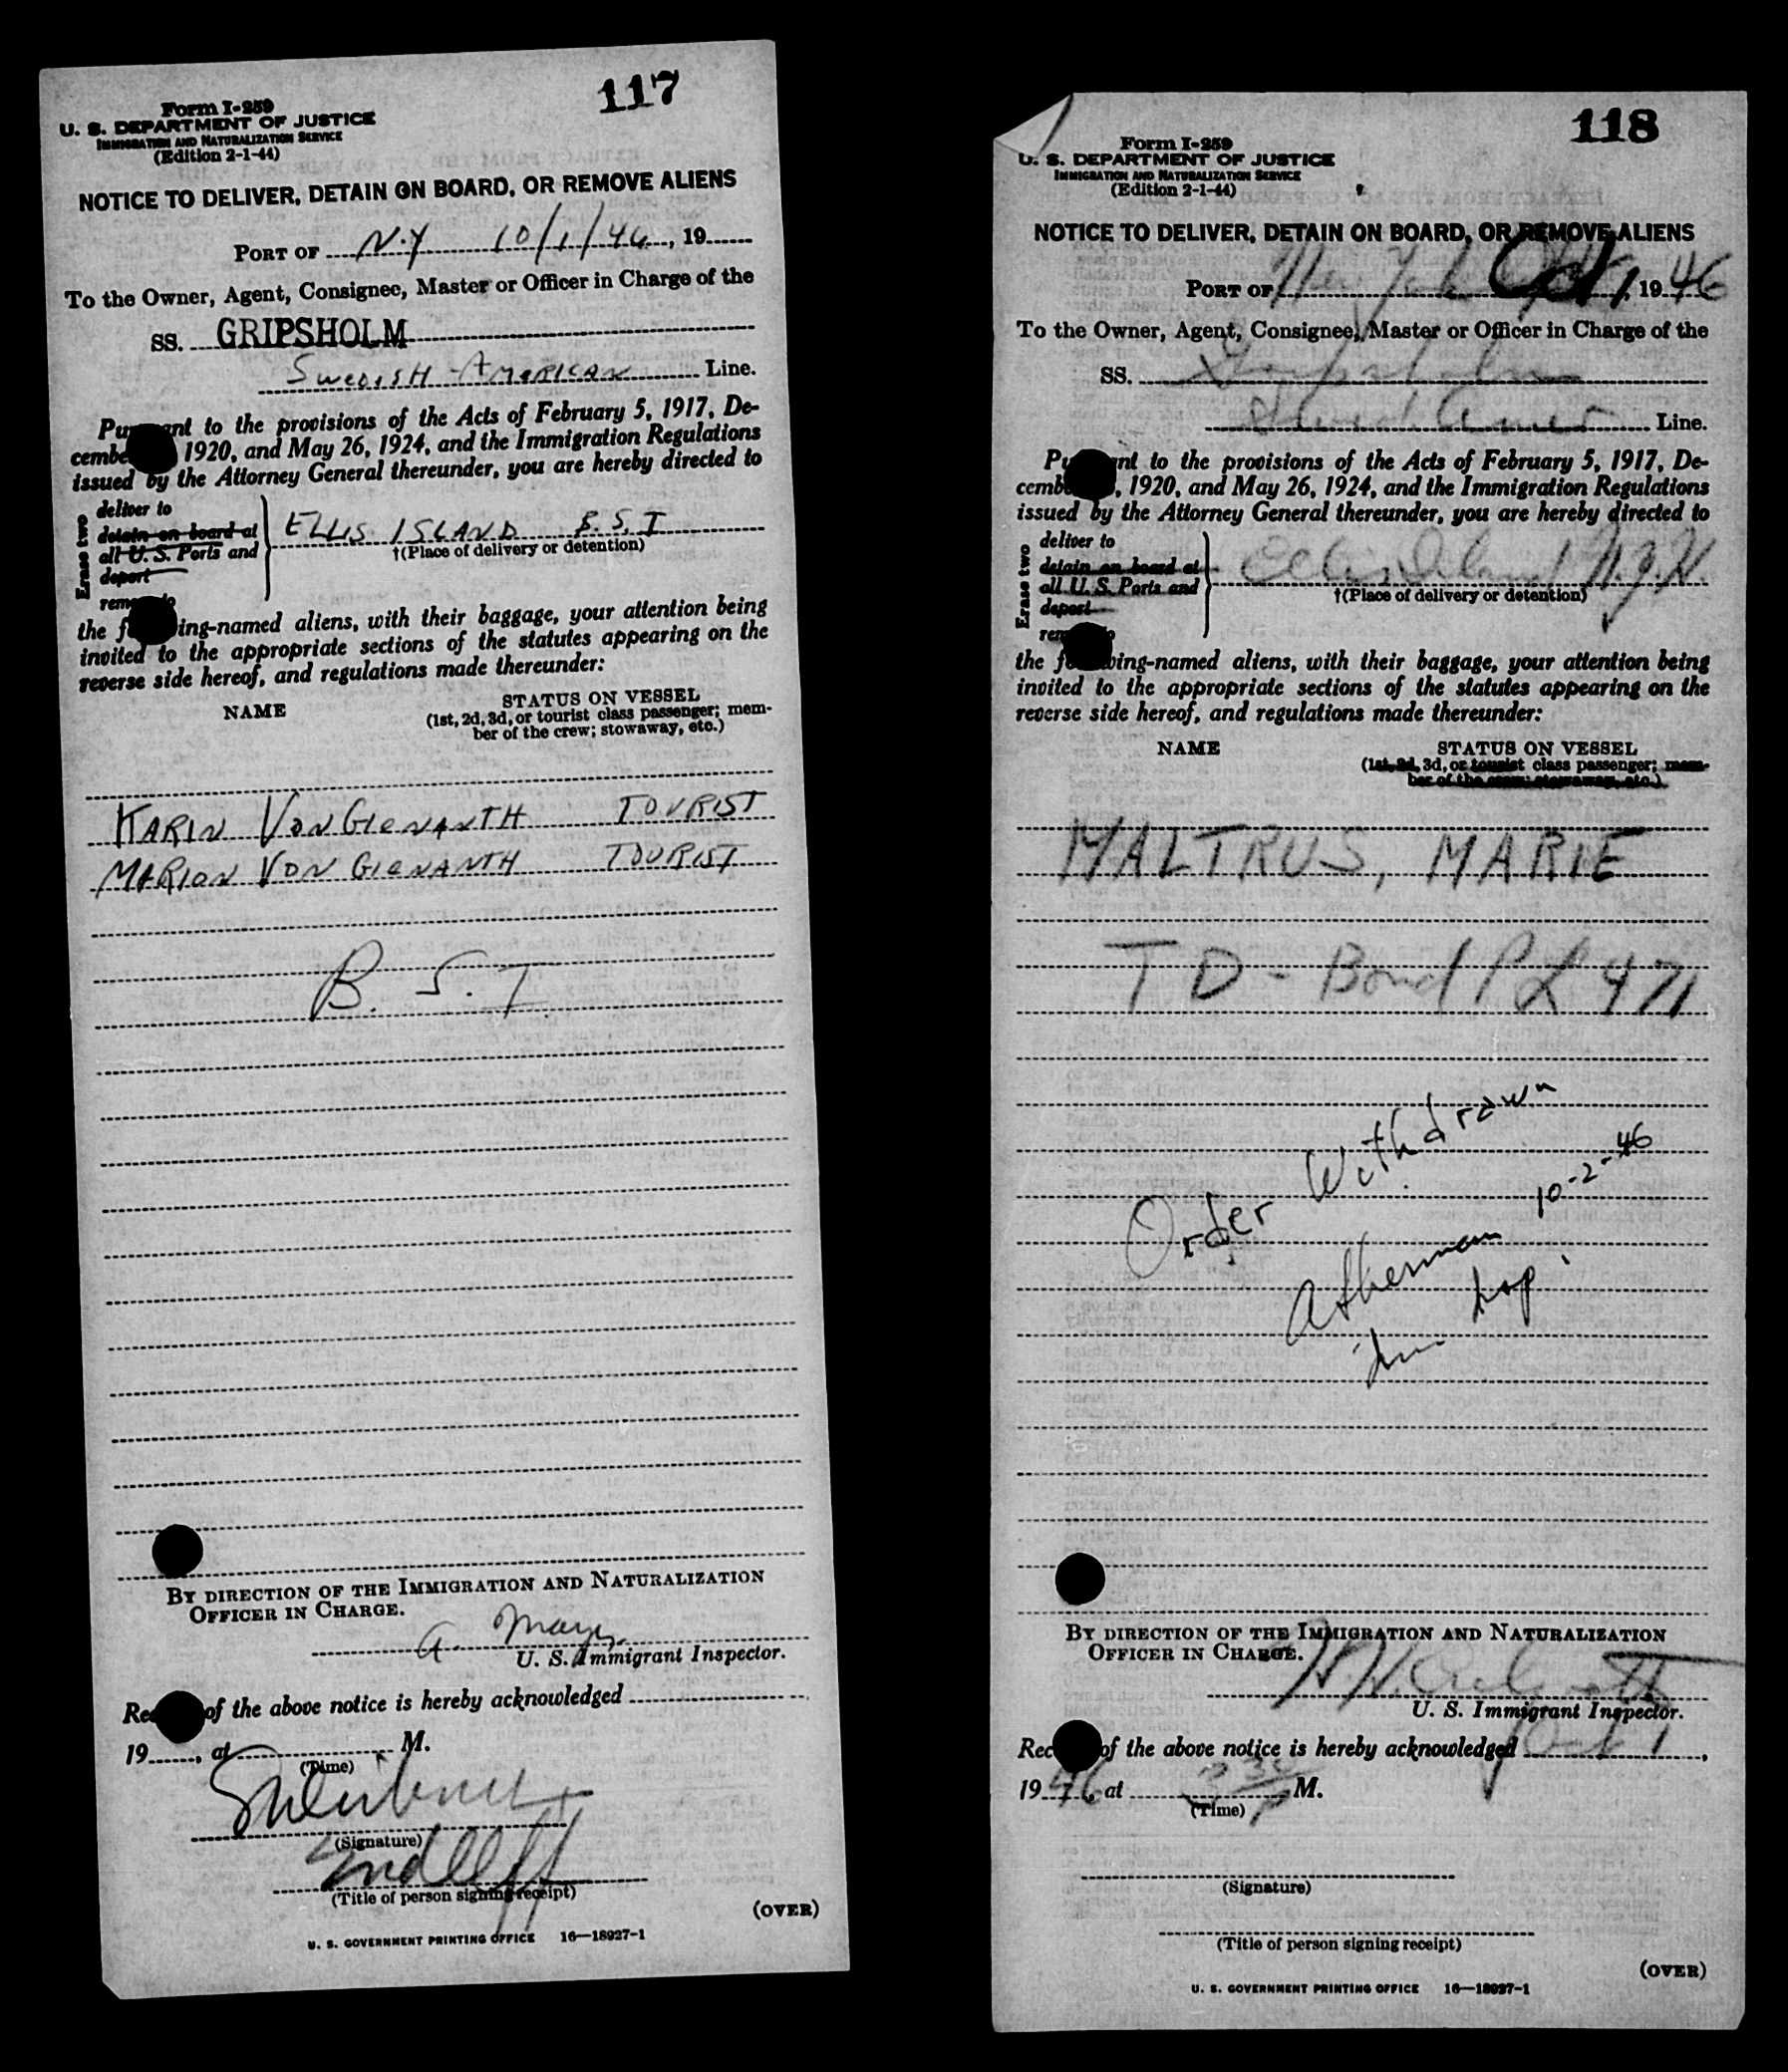 117
Form I-259
U. S. DEPARTMENT OF JUSTICE
IMMIGRATION AND NATURALIZATION SERVICE
(Edition 2-1-44)
NOTICE TO DELIVER, DETAIN ON BOARD, OR REMOVE ALIENS
PORT OF N.Y 10/1/46, 19
To the Owner, Agent, Consignee, Master or Officer in Charge of the
SS. GRIPSHOLM
SWEDISH-AMERICAN Line.
Pu nt to the provisions of the Acts of February 5, 1917, De-
cembe 1920, and May 26, 1924, and the Immigration Regulations
issued by the Attorney General thereunder, you are hereby directed to
Erase two
deliver to
detain on board at
all U. S. Ports and
deport
ELLIS ISLAND B.S.I
†(Place of delivery or detention)
the f ing-named aliens, with their baggage, your attention being
invited to the appropriate sections of the statutes appearing on the
reverse side hereof, and regulations made thereunder:
NAME STATUS ON VESSEL
(1st, 2d, 3d, or tourist class passenger; mem-
ber of the crew; stowaway, etc.)
KARIN VON GIENANTH TOURIST
MARION VON GIENANTH TOURIST
B. S. I
BY DIRECTION OF THE IMMIGRATION AND NATURALIZATION
OFFICER IN CHARGE.
U. S. Immigrant Inspector.
Rec of the above notice is hereby acknowledged
19 , at M.
(Time)
(Signature)
(Title of person signing receipt)
(OVER)
U. S. GOVERNMENT PRINTING OFFICE 16—18927-1
118
Form I-259
U. S. DEPARTMENT OF JUSTICE
IMMIGRATION AND NATURALIZATION SERVICE
(Edition 2-1-44)
NOTICE TO DELIVER, DETAIN ON BOARD, OR REMOVE ALIENS
PORT OF New York Oct 1, 1946
To the Owner, Agent, Consignee, Master or Officer in Charge of the
SS. Gripsholm
Swed Amer Line.
Pu nt to the provisions of the Acts of February 5, 1917, De-
cemb , 1920, and May 26, 1924, and the Immigration Regulations
issued by the Attorney General thereunder, you are hereby directed to
Erase two
deliver to
detain on board at
all U. S. Ports and
deport
Ellis Island N.Y.H
†(Place of delivery or detention)
the fo wing-named aliens, with their baggage, your attention being
invited to the appropriate sections of the statutes appearing on the
reverse side hereof, and regulations made thereunder:
NAME STATUS ON VESSEL
(1st, 2d, 3d, or tourist class passenger; mem-
ber of the crew; stowaway, etc.)
MALTRUS, MARIE
T D - Bond P L 471
Order Withdrawn
10-2-46
BY DIRECTION OF THE IMMIGRATION AND NATURALIZATION
OFFICER IN CHARGE.
U. S. Immigrant Inspector.
Rec of the above notice is hereby acknowledged Oct 1,
1946, at M.
(Time)
(Signature)
(Title of person signing receipt)
(OVER)
U. S. GOVERNMENT PRINTING OFFICE 16—18927-1